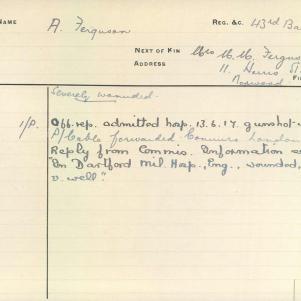 NAME A. Ferguson REG. &C. 43rd Ba
NEXT OF KIN Mrs M. M. Fergus
ADDRESS 11. Harris St
Norwood
Severely wounded.
1/P. Off. rep. admitted hosp. 13.6.17. gunshot
P/Cable forwarded Commrs London
Reply from Commis. Information
"In Dartford Mil. Hosp., Eng., wounded,
v. well".